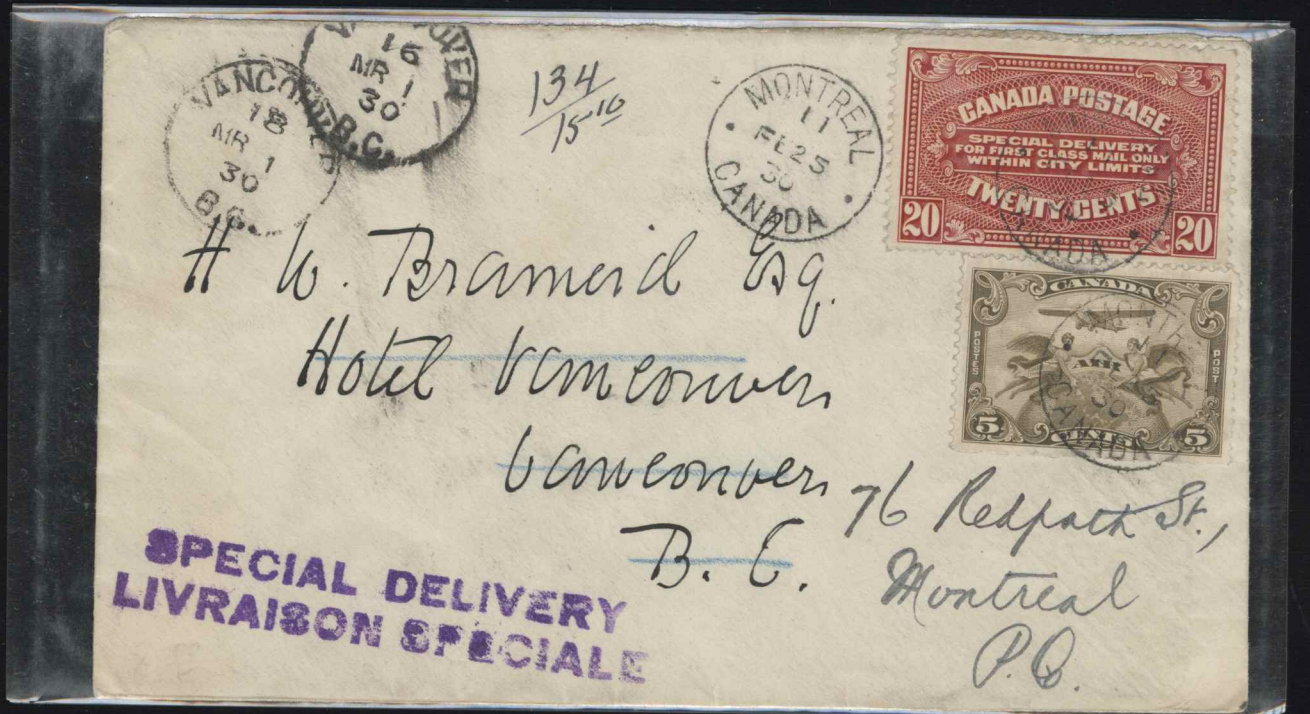 VANCOUVER
18
MR 1
30
B.C.
16
MR 1
30
B.C.
134
15 10
MONTREAL
11
FE 25
30
CANADA
CANADA POSTAGE
SPECIAL DELIVERY
FOR FIRST CLASS MAIL ONLY
WITHIN CITY LIMITS
TWENTY CENTS
20 20
CANADA
CANADA
POSTES
AIR
POST
30
CANADA
5 CENTS 5
H W. Esq.
Hotel Vancouver
Vancouver
B. C.
76 Redpath St.,
Montreal
P.Q.
SPECIAL DELIVERY
LIVRAISON SPECIALE